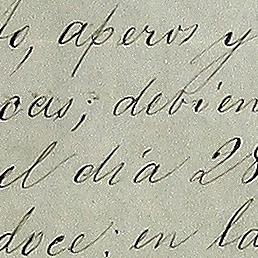 to, aperos y
ocas; debien
el día 28
doce; en la